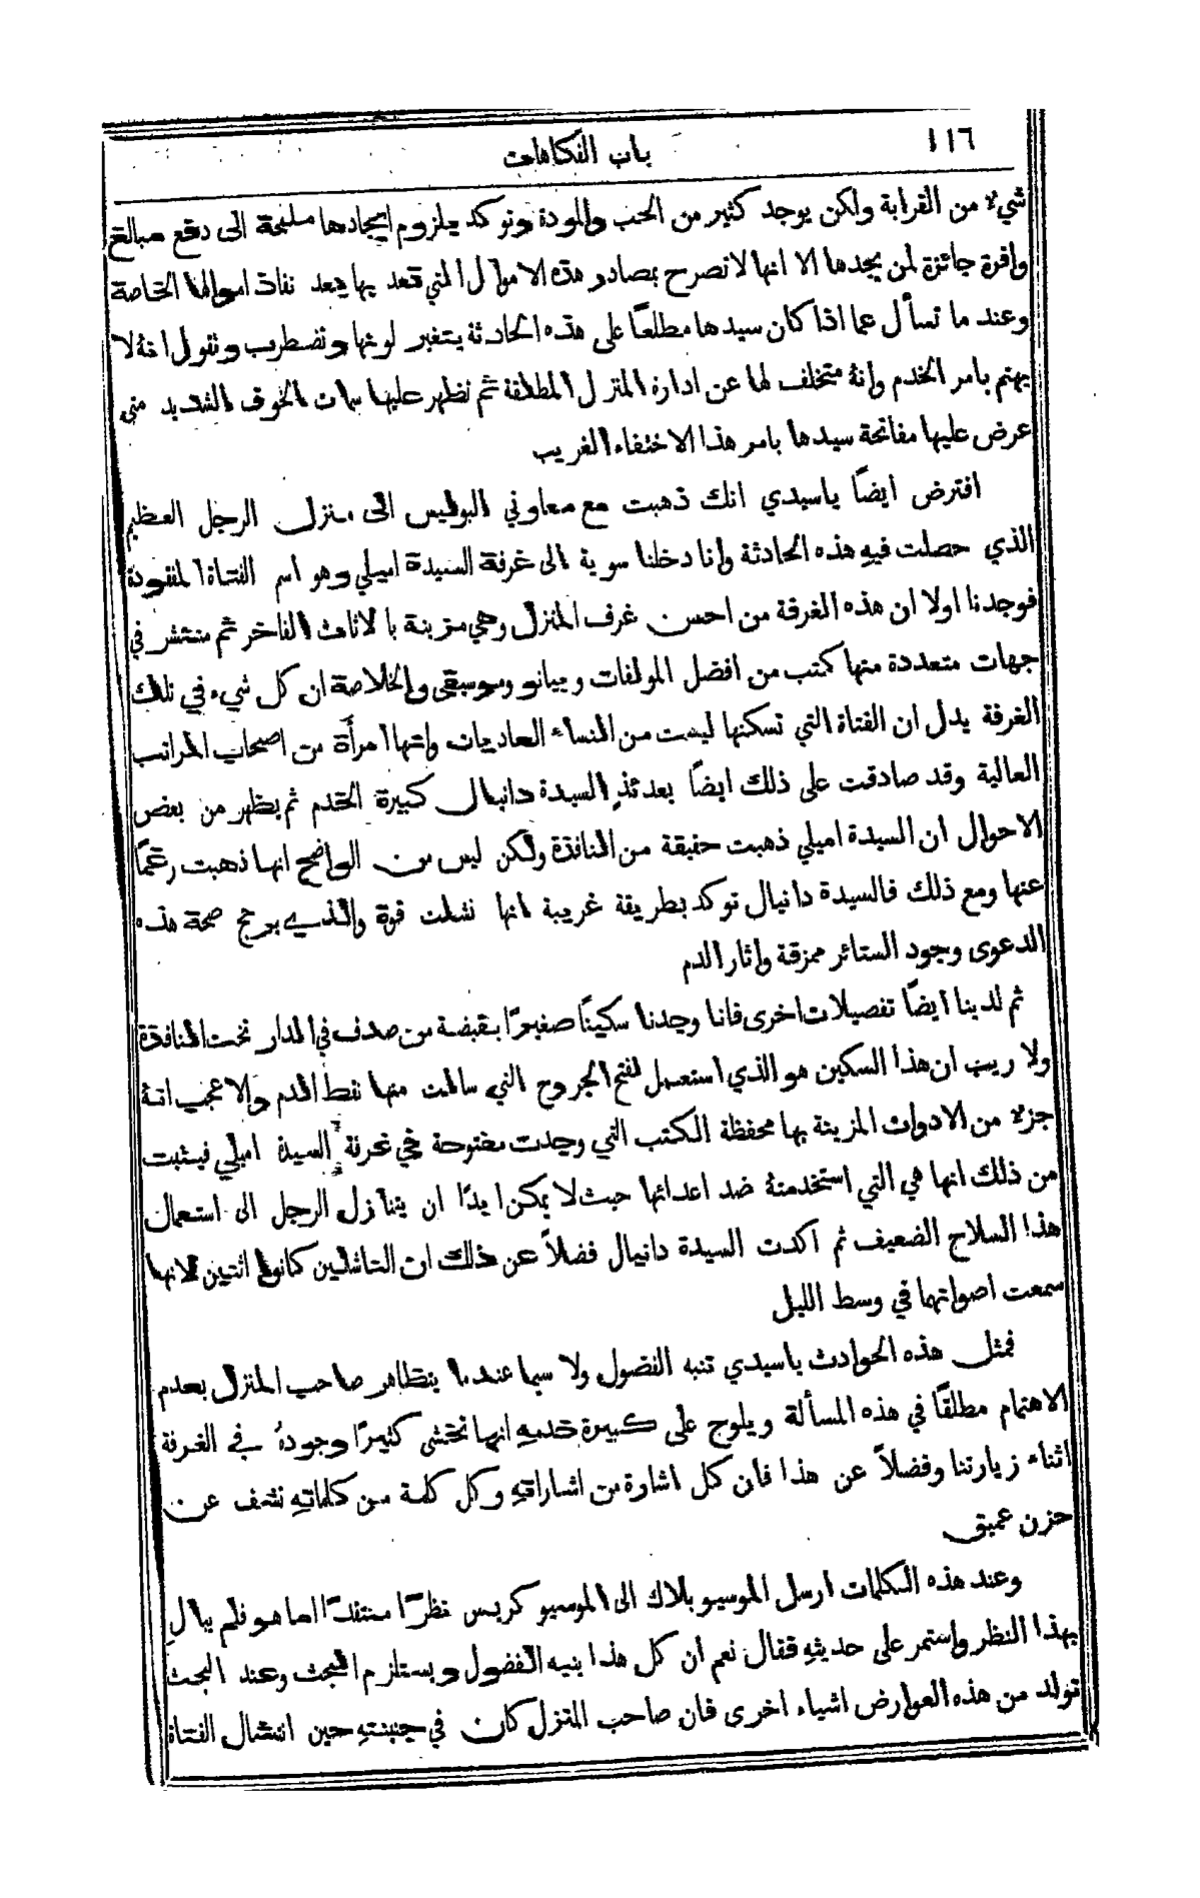 ١١٦
باب الفكاهات
شيء من القرابة ولكن يوجد كثير من الحب والمودة وتوكد بلزوم ايجادها ملمحة الى دفع مبالغ
وافرة جائزة لمن يجدها الا انها لا تصرح بمصادر هذه الاموال التي تعد بها بعد نفاذ اموالها الخاصة
وعند ما تسأل عما اذا كان سيدها مطلعًا على هذه الحادثة يتغير لونها وتضطرب وتقول انهُ لا
يهتم بامر الخدم وانهُ متخلف لها عن ادارة المنزل المطلقة ثم تظهر عليها سمات الخوف الشديد متى
عرض عليها مفاتحة سيدها بامر هذا الاختفاء الغريب
افترض ايضًا ياسيدي انك ذهبت مع معاوني البوليس الى منزل الرجل العظيم
الذي حصلت فيهِ هذه الحادثة وانا دخلنا سوية الى غرفة السيدة اميلي وهو اسم الفتاة المفقودة
فوجدنا اولا ان هذه الغرفة من احسن غرف المنزل وهي مزينة بالاثاث الفاخر ثم منتشر في
جهات متعددة منها كتب من افضل المولفات وبيانو وموسيقى والخلاصة ان كل شيء في تلك
الغرفة يدل ان الفتاة التي تسكنها ليست من النساء العاديات وانها امرأة من اصحاب المراتب
العالية وقد صادقت على ذلك ايضًا بعدئذٍ السيدة دانيال كبيرة الخدم ثم يظهر من بعض
الاحوال ان السيدة اميلي ذهبت حقيقة من النافذة ولكن ليس من الواضح انها ذهبت رغمًا
عنها ومع ذلك فالسيدة دانيال توكد بطريقة غريبة انها نشلت قوة والذي يرجح صحة هذه
الدعوى وجود الستائر ممزقة واثار الدم
ثم لدينا ايضًا تفصيلات اخرى فانا وجدنا سكينًا صغيرًا بقبضة من صدف في الدار تحت النافذة
ولا ريب ان هذا السكين هو الذي استعمل لفتح الجروح التي سالت منها نقط الدم والاعجب انهُ
جزء من الادوات المزينة بها محفظة الكتب التي وجدت مفتوحة في غرفة السيدة اميلي فيثبت
من ذلك انها هي التي استخدمتهُ ضد اعدائها حيث لا يمكن ابدًا ان يتنازل الرجل الى استعمال
هذا السلاح الضعيف ثم اكدت السيدة دانيال فضلاً عن ذلك ان الناشلين كانوا اثنين لانها
سمعت اصواتهما في وسط الليل
فمثل هذه الحوادث ياسيدي تنبه الفضول ولا سيما عندما يتظاهر صاحب المنزل بعدم
الاهتمام مطلقًا في هذه المسألة ويلوح على كبيرة خدمهِ انها تخشى كثيرًا وجودهُ في الغرفة
اثناء زيارتنا وفضلاً عن هذا فان كل اشارة من اشاراتهِ وكل كلمة من كلماتهِ تشف عن
حزن عميق
وعند هذه الكلمات ارسل الموسيو بلاك الى الموسيو كريس نظرًا منتقدًا اما هو فلم يبالِ
بهذا النظر واستمر على حديثهِ فقال نعم ان كل هذا ينبه الفضول ويستلزم البحث وعند البحث
تولد من هذه العوارض اشياء اخرى فان صاحب المنزل كان في جنينتهِ حين انتشال الفتاة